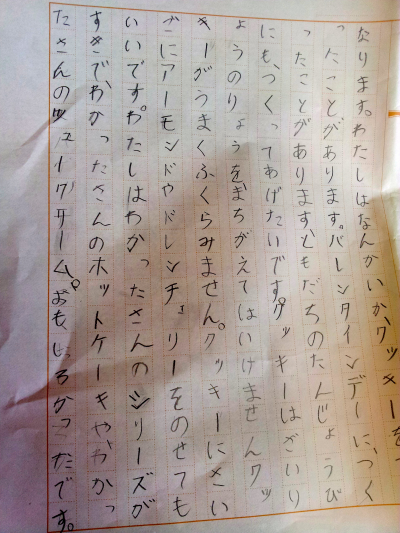 なります。わたしはなんかいか、クッキーをつ
ったことがあります。バレンタインデーに、つく
ったことがあります。ともだちのたんじょうび
にも、つくってあげたいです。クッキーはざいり
ょうのりょうを、まちがえてはいけません。クッ
キーがうまくふくらみません。クッキーにさい
ごにアーモンドやドレンチェリーをのせても
いいです。わたしはわかったさんのシリーズが
すきで、わかったさんのホットケーキや、わかっ
たさんのシュークリーム。おもしろかったです。